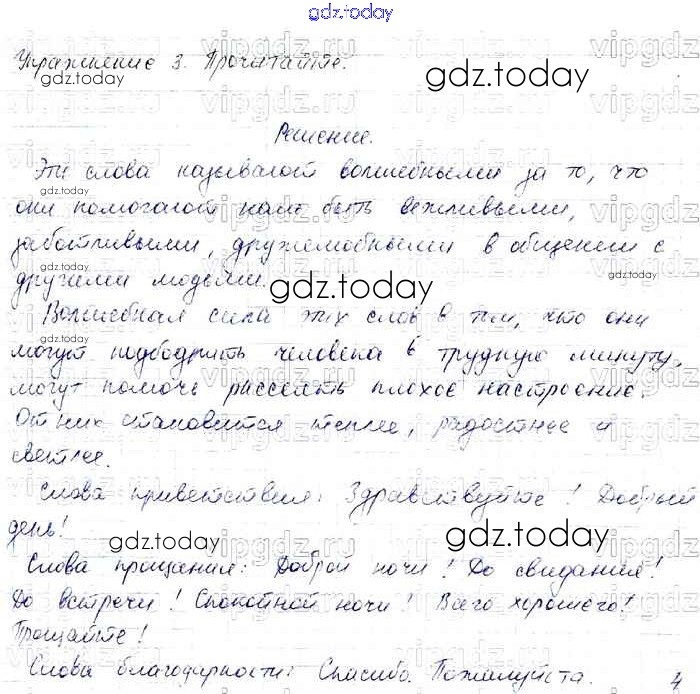 gdz.today
Упражнение 3. Прочитайте.
gdz.today
Решение.
Эти слова называют волшебными за то, что
они помогают нам быть вежливыми,
заботливыми, дружелюбными в общении с
другими людьми.
Волшебная сила этих слов в том, что они
могут подбодрить человека в трудную минуту,
могут помочь рассеять плохое настроение.
От них становится теплее, радостнее и
светлее.
Слова приветствия: Здравствуйте! Добрый
день!
Слова прощания: Доброй ночи! До свидания!
До встречи! Спокойной ночи! Всего хорошего!
Прощайте!
Слова благодарности: Спасибо. Пожалуйста.
4